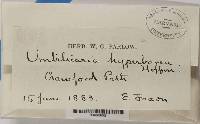 HERB. W. G. FARLOW.
Umbilicaria hyperborea
Hoffm.
Crawford Path
15 June 1883. E. Faxon